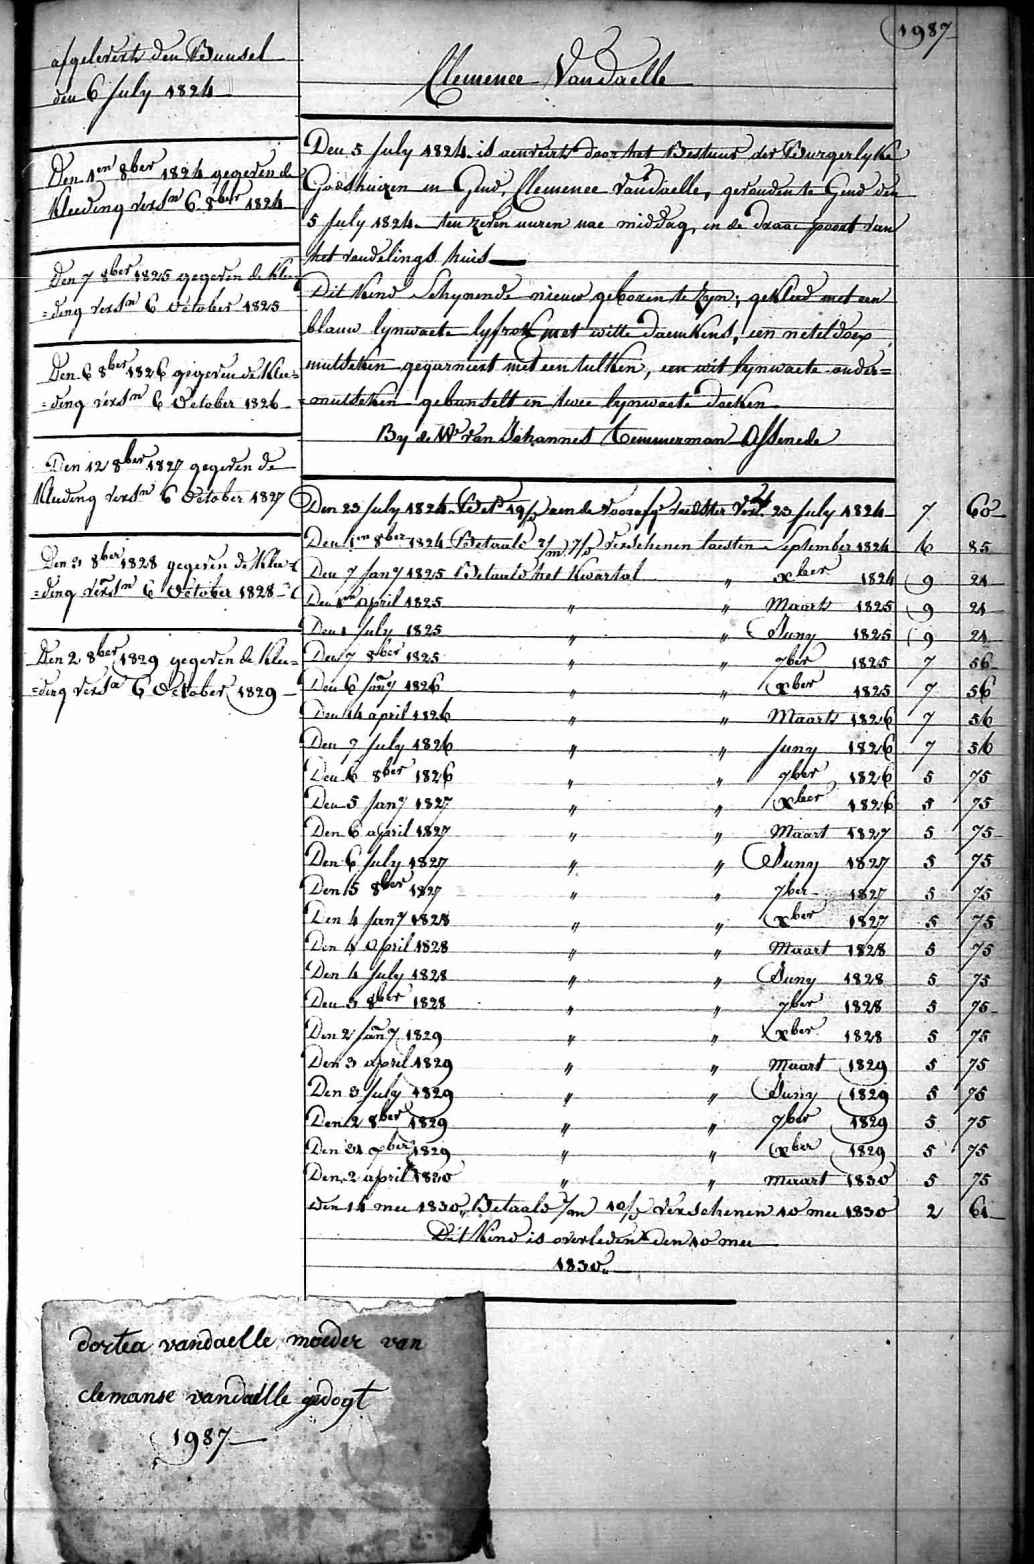 1987
Clemence Vandaelle
afgelevert den Bunsel
den 6 July 1824
Den 1en 8ber 1824 gegeven de
kleeding versn 6 8ber 1824
Den 7 8ber 1825 gegeven de klee=
=ding versn 6 October 1825
Den 6 8ber 1826 gegeven de klee=
=ding versn 6 October 1826
Den 12 8ber 1827 gegeven de
kleeding versn 6 October 1827
Den 3 8ber 1828 gegeven de klee=
=ding versn 6 October 1828
Den 2 8ber 1829 gegeven de klee=
=ding versn 6 October 1829
Den 5 July 1824 is aenveirt door het Bestuur der Burgerlyke
Godshuizen in Gend, Clemence Vandaelle, gevonden te Gend den
5 July 1824 ten zeven uuren nae middag, in de draai poort van
het vondelings huis
Dit kind schynende nieuw geboren te zyn; gekleed met een
blauw lynwaete lyfrok met witte daemkens, een neteldoex
mutseken gegarniert met een tulken, een wit lynwaete onder=
=mutseken gebunselt in twee lynwaete doeken
By de We van Johannes Temmerman Assenede
Den 23 July 1824 Bet 19/ aen de voorafge voedster Ver. 23 July 1824 7 60
Den 1en 8ber 1824 Betaald 2/m 7/d verschenen laesten September 1824 6 85
Den 7 Jany 1825 Betaald het kwartal " xber 1824 9 24
Den 1en April 1825 " " Maart 1825 9 24
Den 1 July 1825 " " Juny 1825 9 24
Den 7 8ber 1825 " " 7ber 1825 7 56
Den 6 Jany 1826 " " xber 1825 7 56
Den 14 april 1826 " " Maart 1826 7 56
Den 7 July 1826 " " Juny 1826 7 56
Den 6 8ber 1826 " " 7ber 1826 5 75
Den 5 Jany 1827 " " xber 1826 5 75
Den 6 april 1827 " " Maart 1827 5 75
Den 6 July 1827 " " Juny 1827 5 75
Den 15 8ber 1827 " " 7ber 1827 5 75
Den 4 Jany 1828 " " xber 1827 5 75
Den 4 April 1828 " " Maart 1828 5 75
Den 4 July 1828 " " Juny 1828 5 75
Den 3 8ber 1828 " " 7ber 1828 5 75
Den 2 Jany 1829 " " xber 1828 5 75
Den 3 april 1829 " " Maart 1829 5 75
Den 3 July 1829 " " Juny 1829 5 75
Den 2 8ber 1829 " " 7ber 1829 5 75
Den 31 xber 1829 " " xber 1829 5 75
Den 2 april 1830 " " maart 1830 5 75
den 14 mei 1830 Betaald 1/m 10/d verschenen 10 mei 1830 2 61
Dit kind is overleden den 10 mei
1830
dortea vandaelle moeder van
clemanse vandaelle gedogt
1987